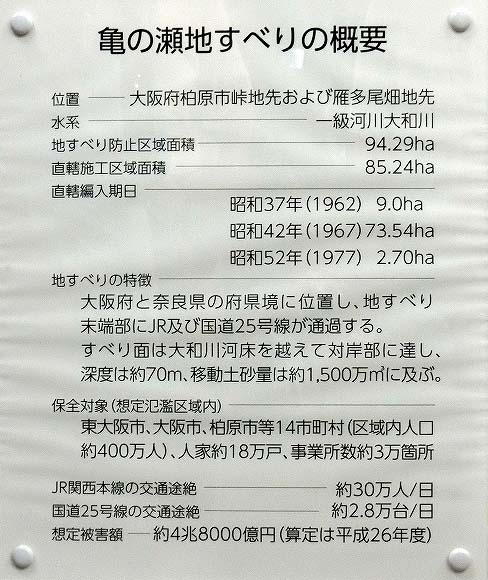 亀の瀬地すべりの概要
位置 ── 大阪府柏原市峠地先および雁多尾畑地先
水系 ── 一級河川大和川
地すべり防止区域面積 ── 94.29ha
直轄施工区域面積 ── 85.24ha
直轄編入期日 ──
昭和37年(1962) 9.0ha
昭和42年(1967) 73.54ha
昭和52年(1977) 2.70ha
地すべりの特徴 ──
大阪府と奈良県の府県境に位置し、地すべり
末端部にJR及び国道25号線が通過する。
すべり面は大和川河床を越えて対岸部に達し、
深度は約70m、移動土砂量は約1,500万㎥に及ぶ。
保全対象(想定氾濫区域内) ──
東大阪市、大阪市、柏原市等14市町村(区域内人口
約400万人)、人家約18万戸、事業所数約3万箇所
JR関西本線の交通途絶 ── 約30万人/日
国道25号線の交通途絶 ── 約2.8万台/日
想定被害額 ── 約4兆8000億円(算定は平成26年度)